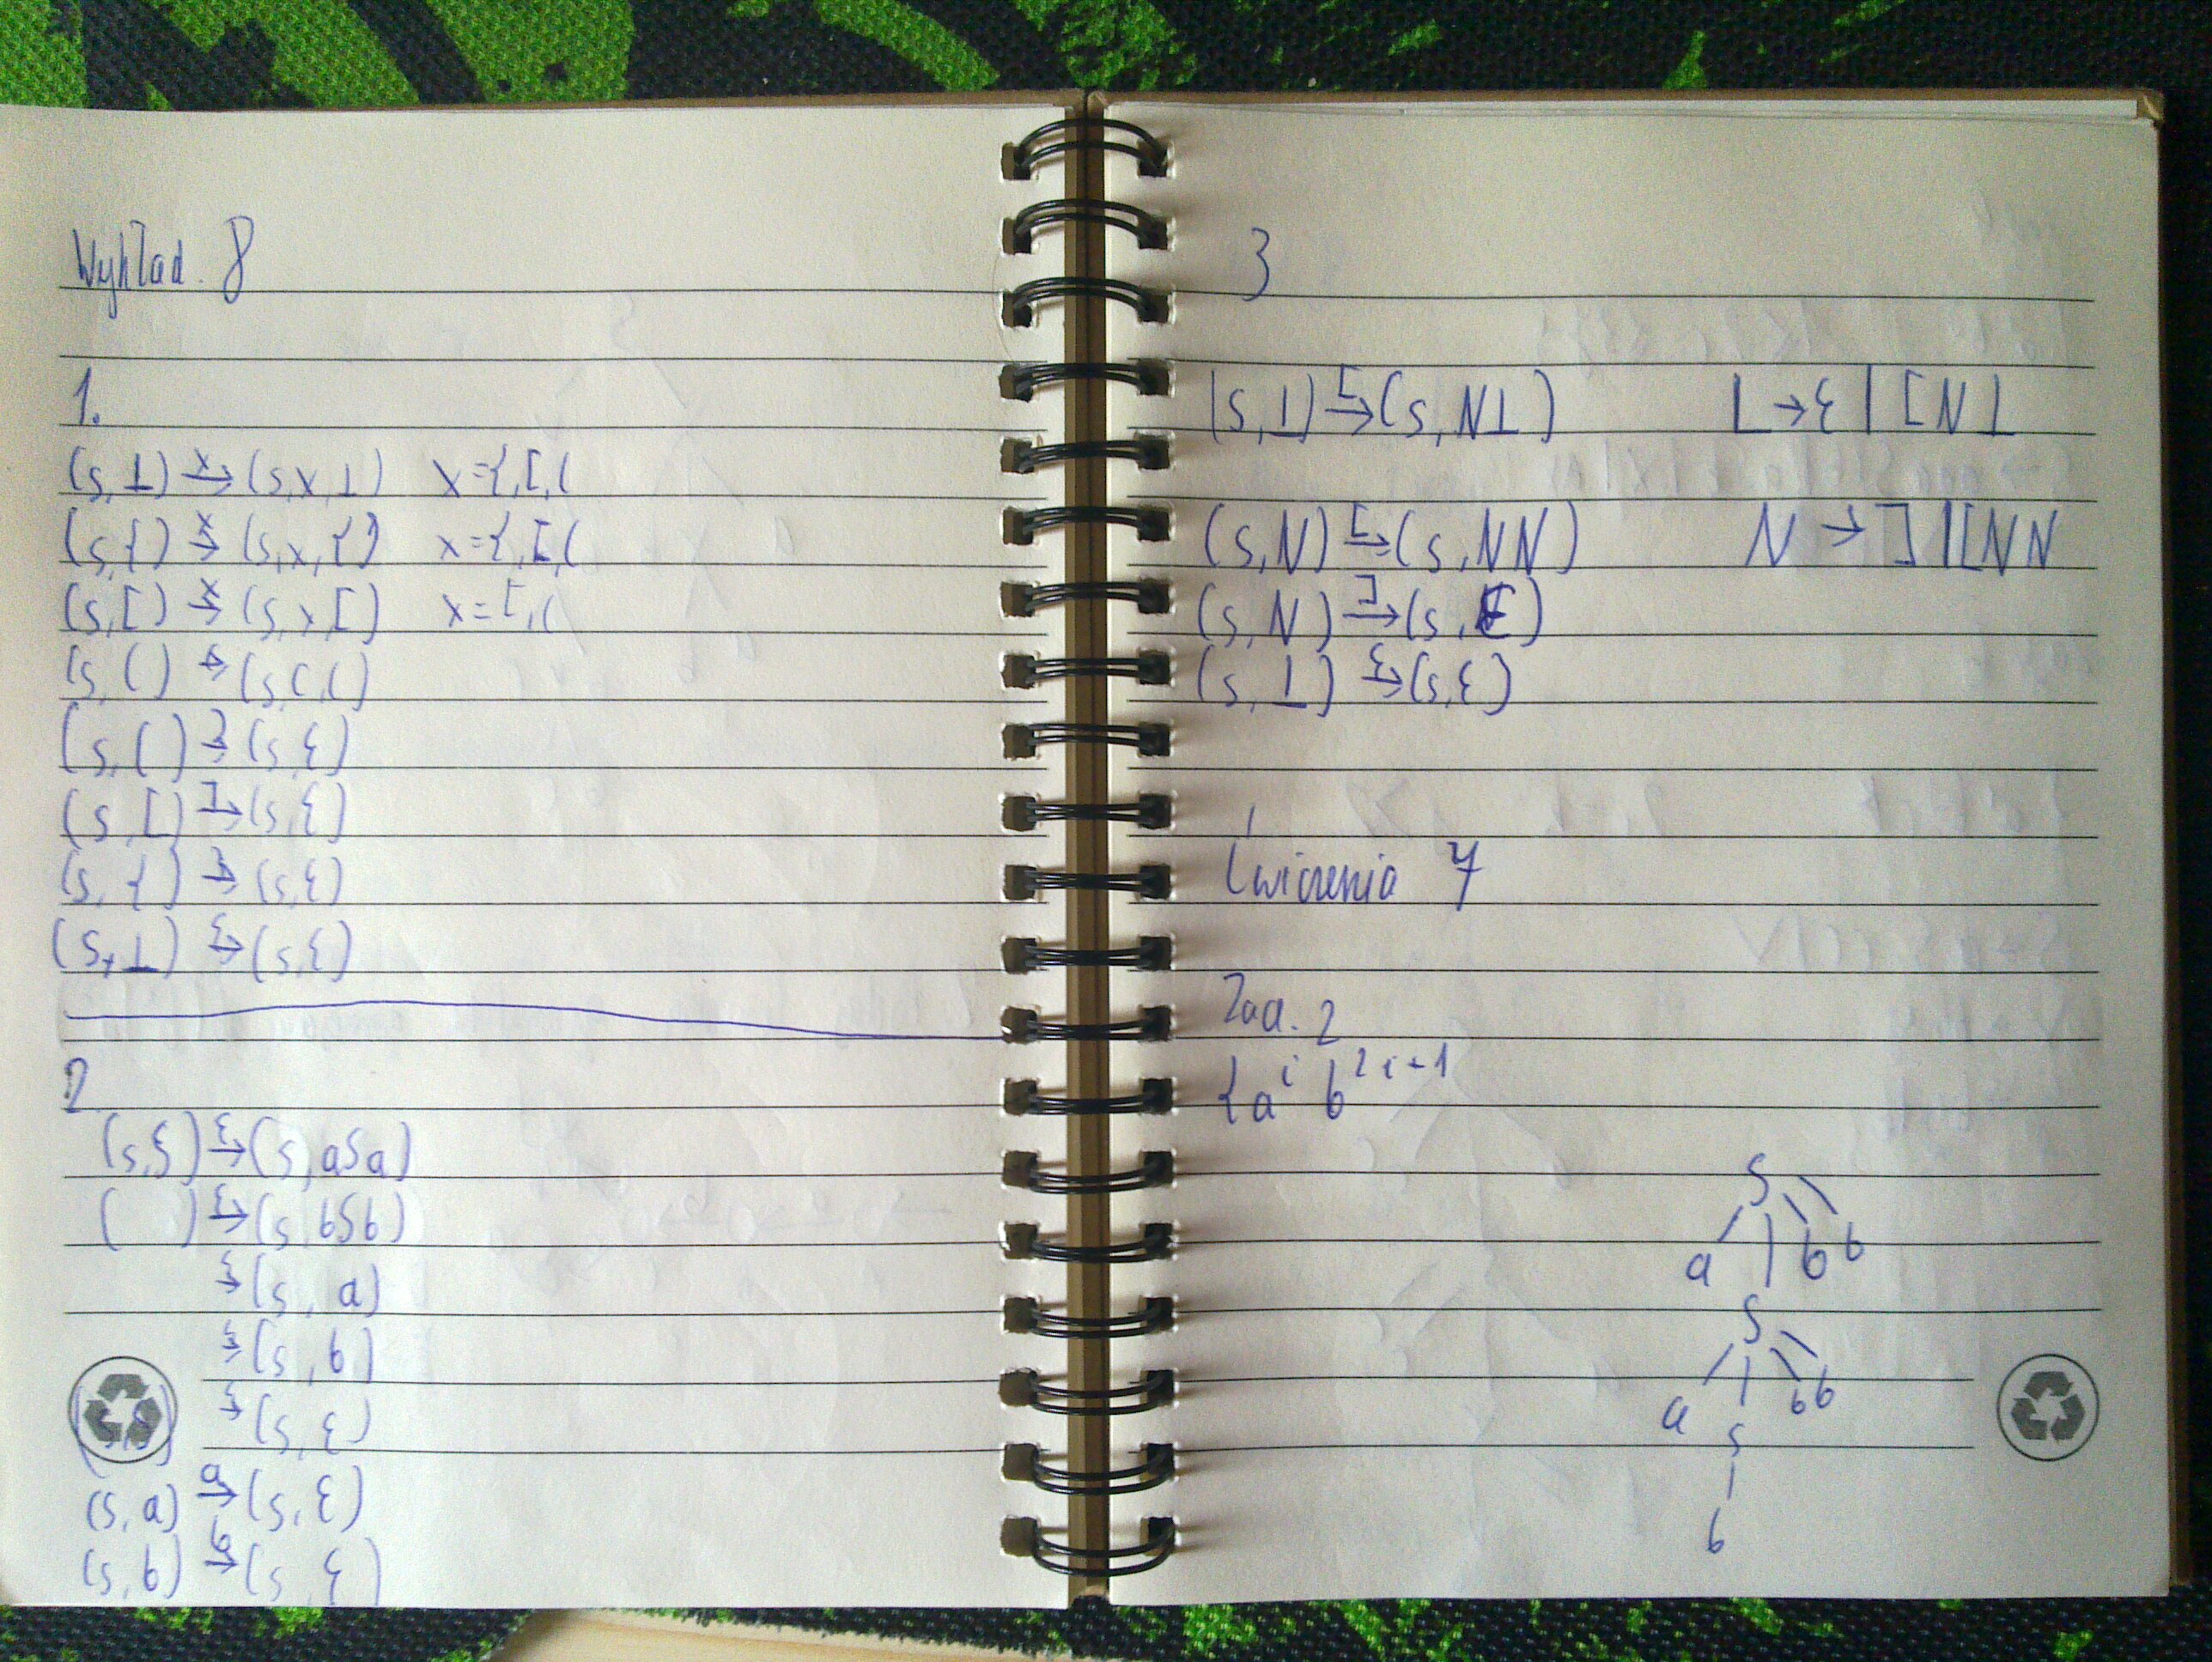 Wykład. 8
1.
(s,⊥) →x (s,x,⊥) x={,[,(
({,s) →x (s,x,{) x={,[,(
([,s) →x (s,x,[) x=[,(
(s,() → (s,()
(s,() →) (s,ε)
(s,[) →] (s,ε)
(s,{) →} (s,ε)
(s,⊥) →ε (s,ε)
2
(s,S) →ε (s,aSa)
( ) →ε (s,bSb)
→ε (s,a)
→ε (s,b)
→ε (s,ε)
(s,a) →a (s,ε)
(s,b) →b (s,ε)
3
(s,⊥) →[ (s,N⊥) ⊥ → ε | [N⊥
(s,N) →[ (s,NN) N → ] | [NN
(s,N) →] (s,ε)
(s,⊥) →ε (s,ε)
Ćwiczenia 7
Zad. 2
{a^i b^2i+1
S
a b b
S
a b b
S
b